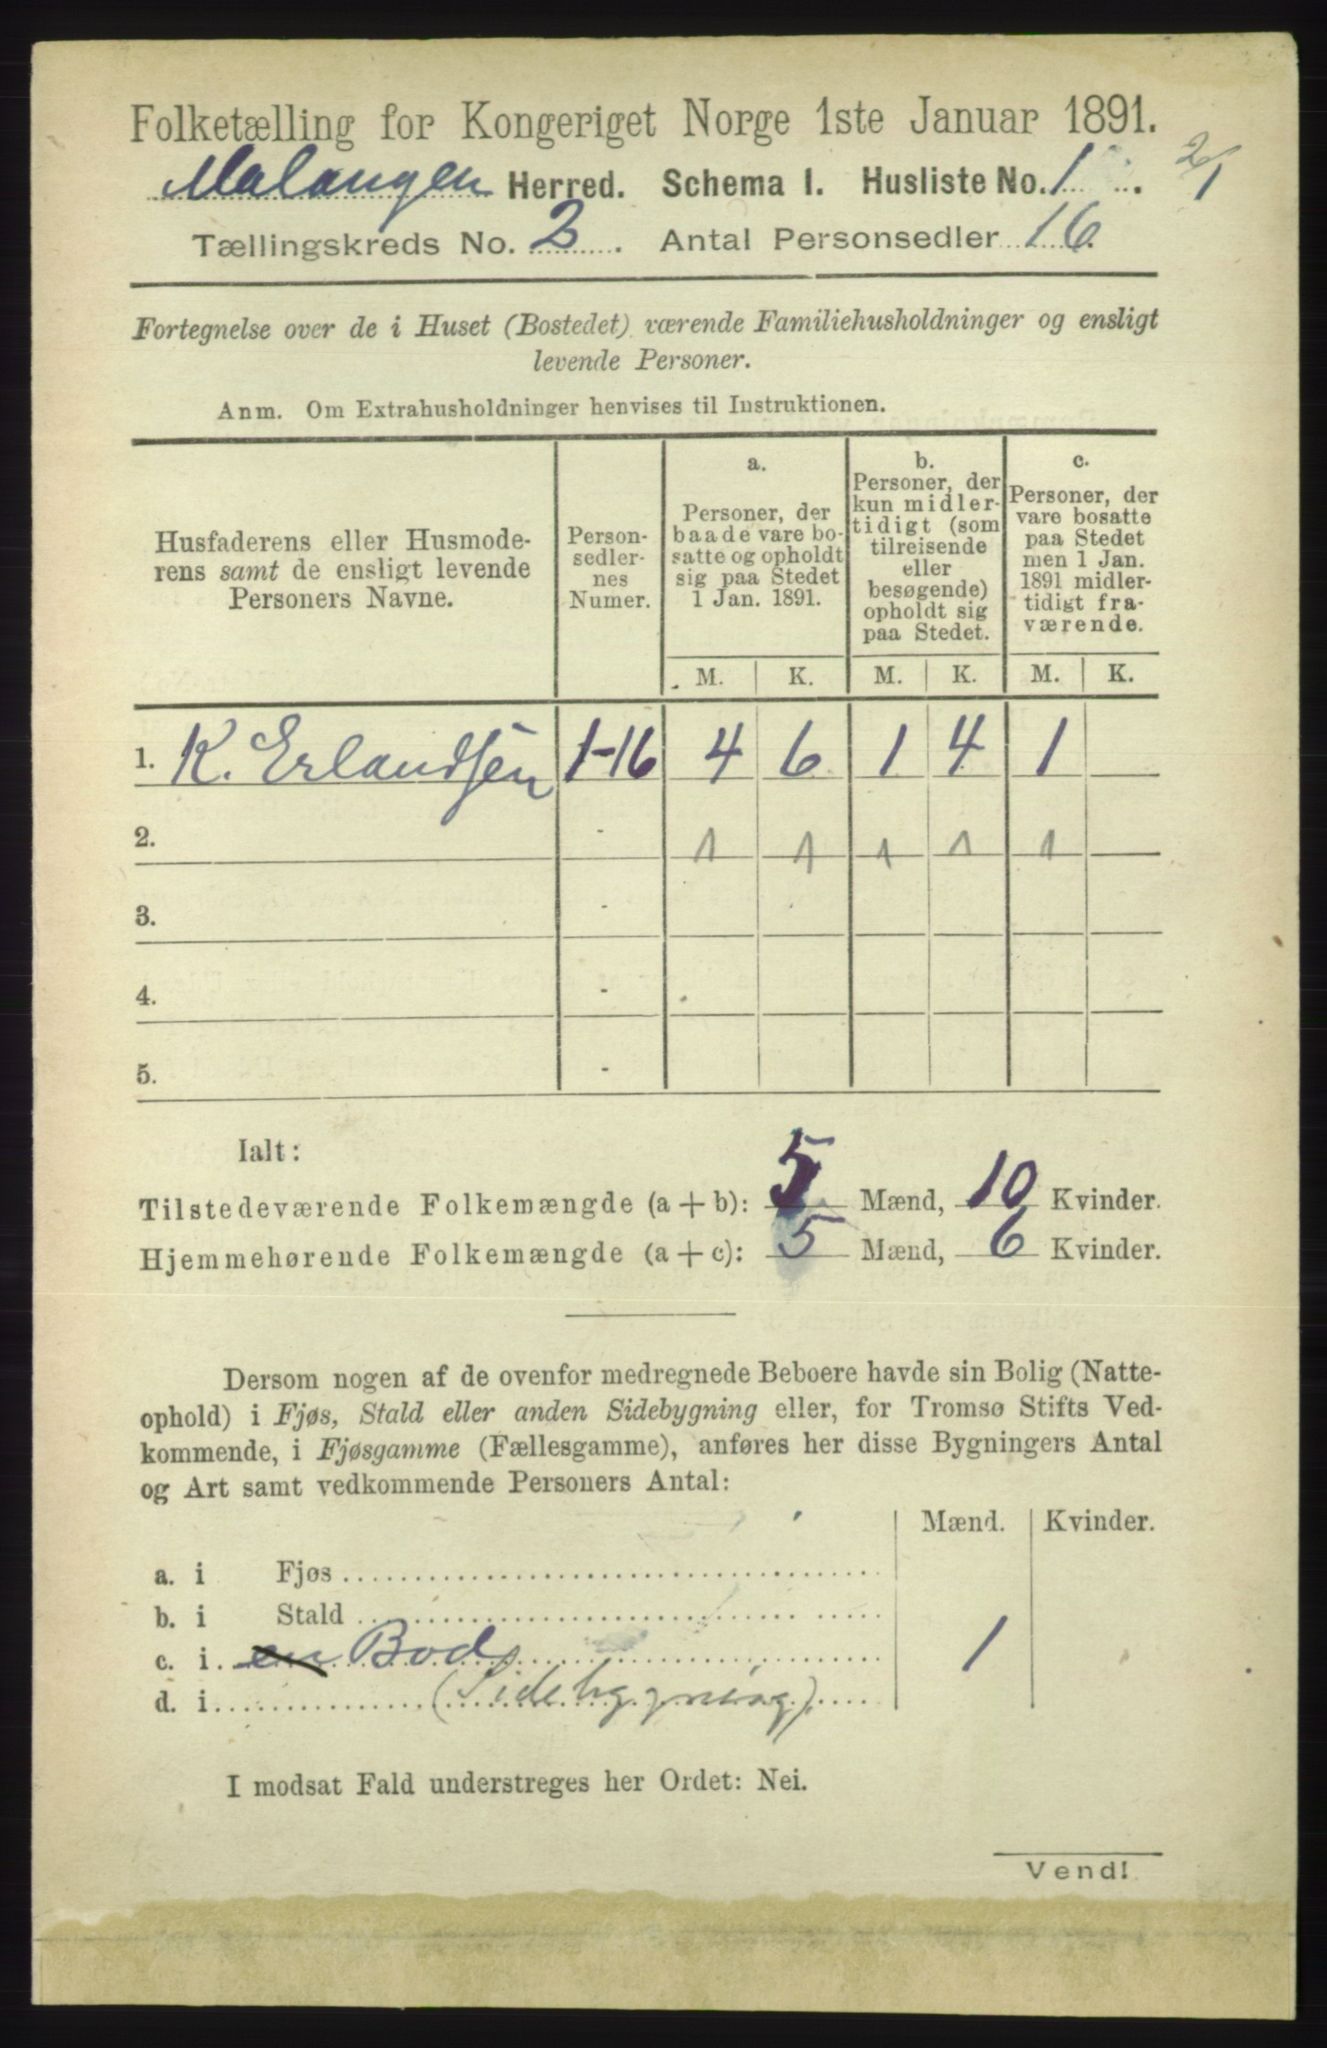 Folketælling for Kongeriget Norge 1ste Januar 1891.
Malangen Herred. Schema I. Husliste No. 1. 2/1
Tællingskreds No. 2. Antal Personsedler 16
Fortegnelse over de i Huset (Bostedet) værende Familiehusholdninger og ensligt
levende Personer.
Anm. Om Extrahusholdninger henvises til Instruktionen.
Husfaderens eller Husmode-
rens samt de ensligt levende
Personers Navne.
Person-
sedler-
nes
Numer.
a.
Personer, der
baade vare bo-
satte og opholdt
sig paa Stedet
1 Jan. 1891.
b.
Personer, der
kun midler-
tidigt (som
tilreisende
eller
besøgende)
opholdt sig
paa Stedet.
c.
Personer, der
vare bosatte
paa Stedet
men 1 Jan.
1891 midler-
tidigt fra-
værende.
M. K. M. K. M. K.
1. K. Erlandsen 1-16 4 6 1 4 1
2. - 1 1 1 1 1
3. -
4. -
5. -
Ialt:
Tilstedeværende Folkemængde (a + b): 5 Mænd, 10 Kvinder.
Hjemmehørende Folkemængde (a + c): 5 Mænd, 6 Kvinder.
Dersom nogen af de ovenfor medregnede Beboere havde sin Bolig (Natte-
ophold) i Fjøs, Stald eller anden Sidebygning eller, for Tromsø Stifts Ved-
kommende, i Fjøsgamme (Fællesgamme), anføres her disse Bygningers Antal
og Art samt vedkommende Personers Antal:
Mænd. Kvinder.
a. i Fjøs
b. i Stald
c. i en Bod 1
d. i (Sidebygning)
I modsat Fald understreges her Ordet: Nei.
Vend!